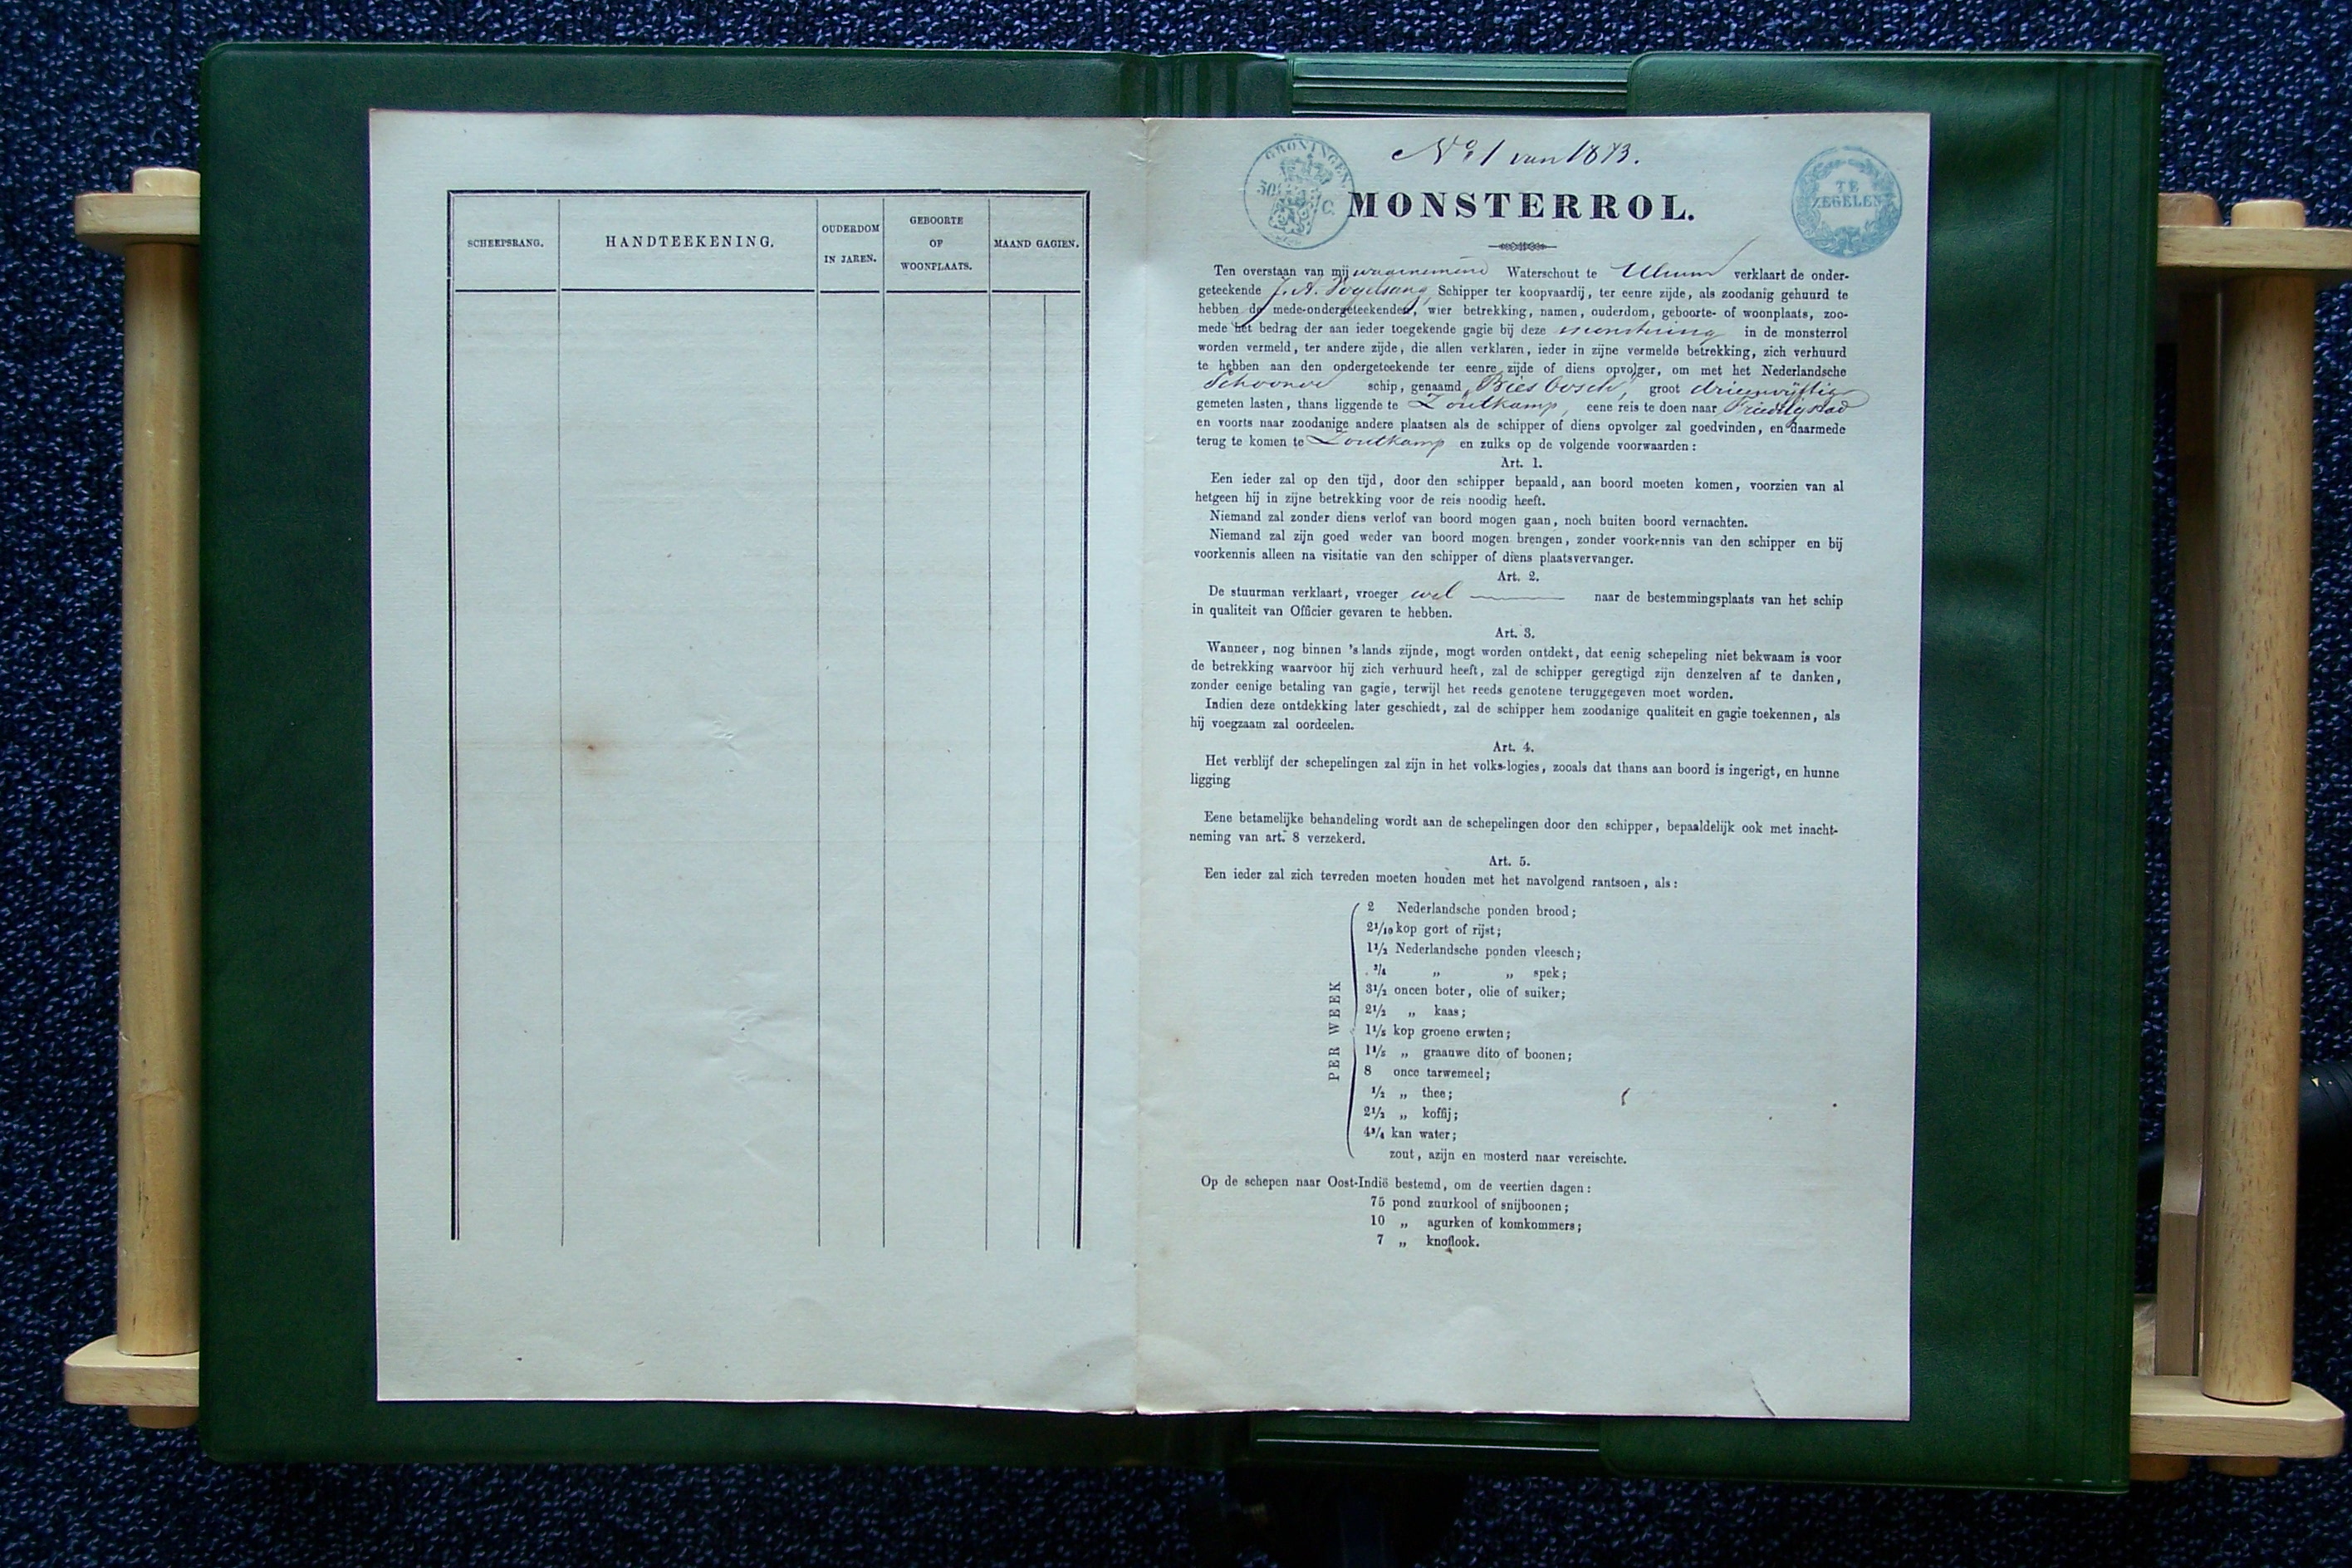 SCHEEPSRANG.
HANDTEEKENING.
OUDERDOM
IN JAREN.
GEBOORTE
OF
WOONPLAATS.
MAAND GAGIEN.
GRONINGEN
50 C.
No. 1 van 1873.
TE
ZEGELEN
MONSTERROL.
Ten overstaan van mij waarnemend Waterschout te Ulrum verklaart de onder-
geteekende J. A. Vogelsang Schipper ter koopvaardij, ter eenre zijde, als zoodanig gehuurd te
hebben de mede-ondergeteekenden, wier betrekking, namen, ouderdom, geboorte- of woonplaats, zoo-
mede het bedrag der aan ieder toegekende gagie bij deze monstering in de monsterrol
worden vermeld, ter andere zijde, die allen verklaren, ieder in zijne vermelde betrekking, zich verhuurd
te hebben aan den ondergeteekende ter eenre zijde of diens opvolger, om met het Nederlandsche
Schooner schip, genaamd "Biesbosch", groot drieenvijftig
gemeten lasten, thans liggende te Zoutkamp, eene reis te doen naar
en voorts naar zoodanige andere plaatsen als de schipper of diens opvolger zal goedvinden, en daarmede
terug te komen te Zoutkamp en zulks op de volgende voorwaarden:
Art. 1.
Een ieder zal op den tijd, door den schipper bepaald, aan boord moeten komen, voorzien van al
hetgeen hij in zijne betrekking voor de reis noodig heeft.
Niemand zal zonder diens verlof van boord mogen gaan, noch buiten boord vernachten.
Niemand zal zijn goed weder van boord mogen brengen, zonder voorkennis van den schipper en bij
voorkennis alleen na visitatie van den schipper of diens plaatsvervanger.
Art. 2.
De stuurman verklaart, vroeger wel naar de bestemmingsplaats van het schip
in qualiteit van Officier gevaren te hebben.
Art. 3.
Wanneer, nog binnen 's lands zijnde, mogt worden ontdekt, dat eenig schepeling niet bekwaam is voor
de betrekking waarvoor hij zich verhuurd heeft, zal de schipper geregtigd zijn denzelven af te danken,
zonder eenige betaling van gagie, terwijl het reeds genotene teruggegeven moet worden.
Indien deze ontdekking later geschiedt, zal de schipper hem zoodanige qualiteit en gagie toekennen, als
hij voegzaam zal oordeelen.
Art. 4.
Het verblijf der schepelingen zal zijn in het volks-logies, zooals dat thans aan boord is ingerigt, en hunne
ligging
Eene betamelijke behandeling wordt aan de schepelingen door den schipper, bepaaldelijk ook met inacht-
neming van art. 8 verzekerd.
Art. 5.
Een ieder zal zich tevreden moeten houden met het navolgend rantsoen, als:
PER WEEK
2 Nederlandsche ponden brood;
2 1/10 kop gort of rijst;
1 1/2 Nederlandsche ponden vleesch;
3/4 „ „ spek;
3 1/2 oncen boter, olie of suiker;
2 1/2 „ kaas;
1 1/5 kop groene erwten;
1 1/5 „ graauwe dito of boonen;
8 once tarwemeel;
1/2 „ thee;
2 1/2 „ koffij;
4 3/4 kan water;
zout, azijn en mosterd naar vereischte.
Op de schepen naar Oost-Indië bestemd, om de veertien dagen:
75 pond zuurkool of snijboonen;
10 „ agurken of komkommers;
7 „ knoflook.